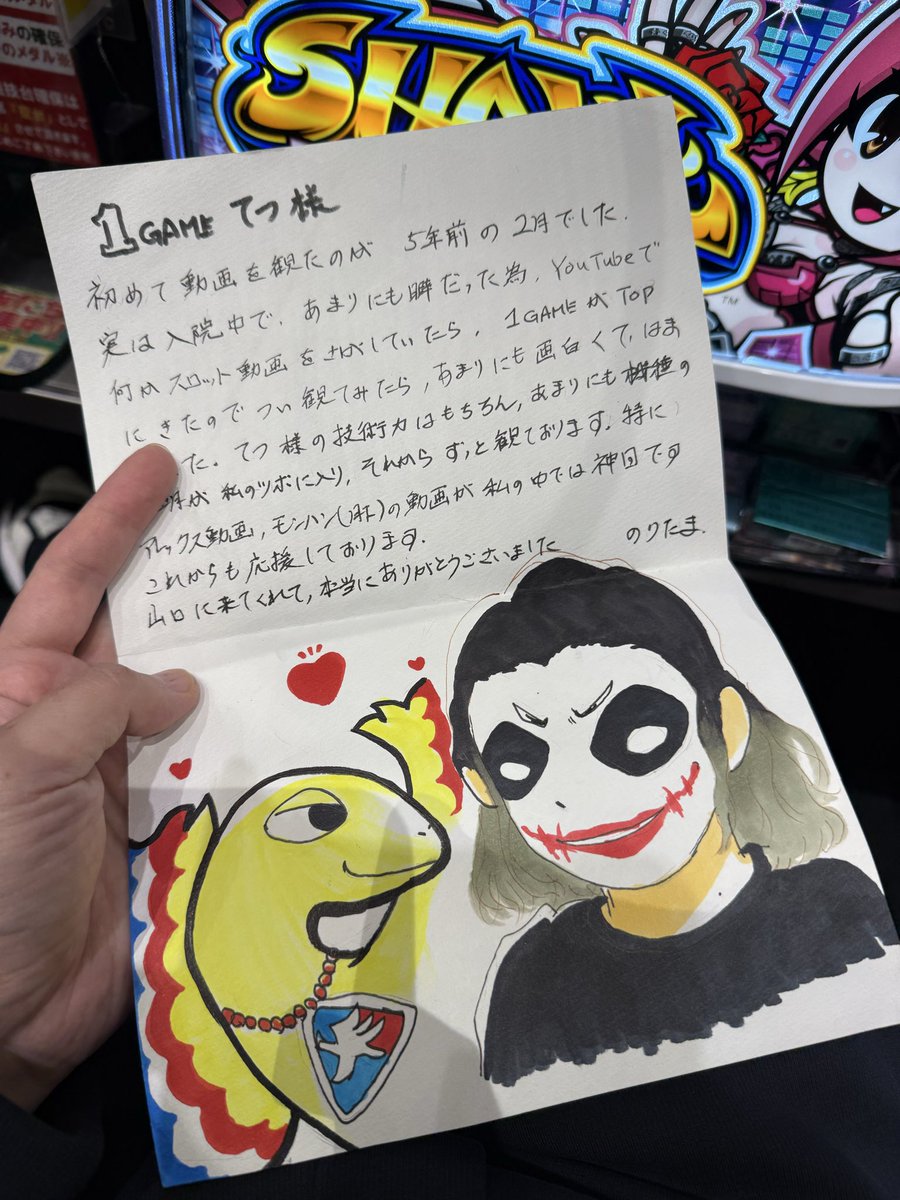 みの確保
のメダル※
技台確保は
SHAKE
TM
1GAME てつ様
初めて動画を観たのが 5年前の2月でした.
実は入院中で、あまりにも暇だった為、YouTubeで
何かスロット動画をさがしていたら、1GAMEがTOP
にきたのでつい観てみたら、あまりにも面白くて、はま
た. てつ様の技術力はもちろん、あまりにも機種の
が私のツボに入り、それからずっと観ております. 特に
アレックス動画、モンハン(月下)の動画が私の中では神回です
これからも応援しております.
山口に来てくれて、本当にありがとうございました
のりたま.